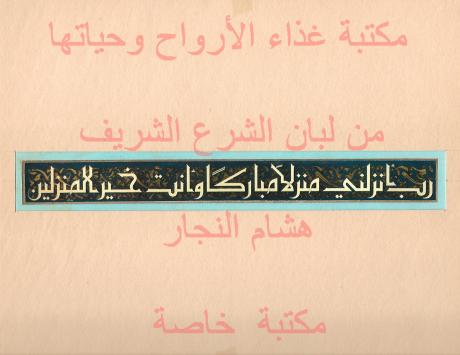 مكتبة غذاء الأرواح وحياتها
من لبان الشرع الشريف
رب انزلني منزلا مباركا وانت خير المنزلين
هشام النجار
مكتبة خاصة